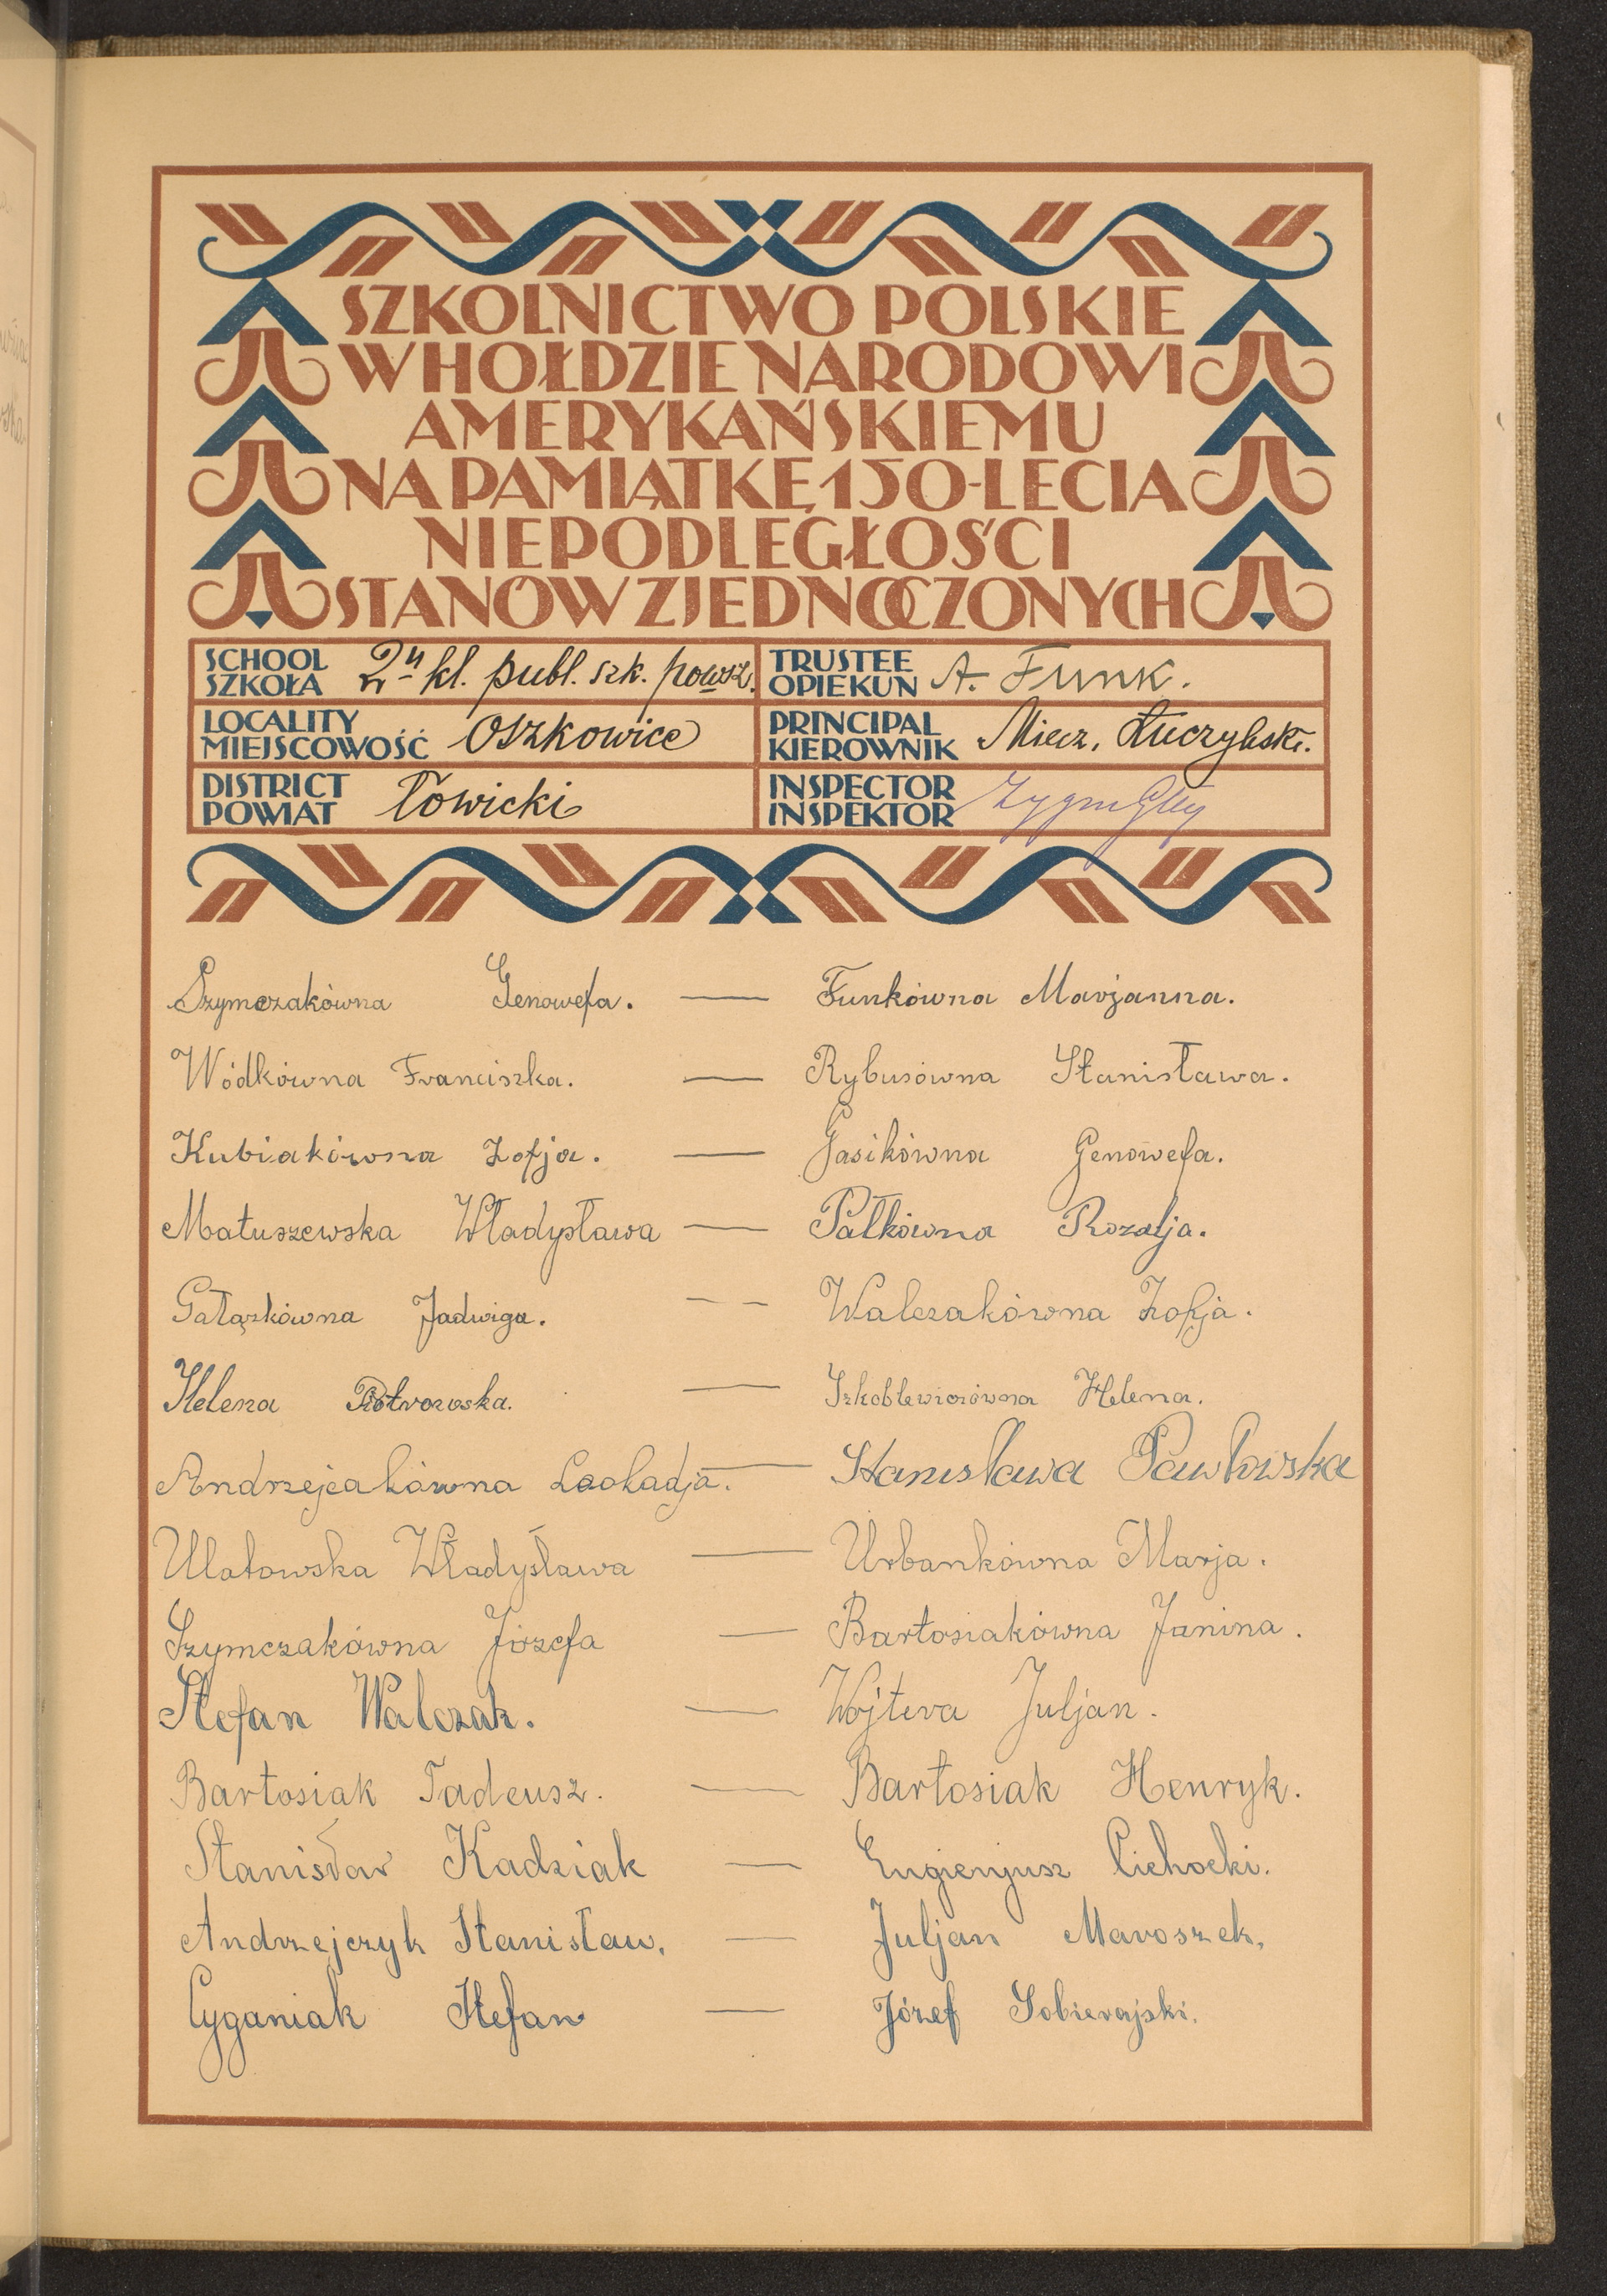 SZKOLNICTWO POLSKIE
W HOŁDZIE NARODOWI
AMERYKAŃSKIEMU
NA PAMIĄTKĘ 150-LECIA
NIEPODLEGŁOŚCI
STANÓW ZJEDNOCZONYCH
SCHOOL
SZKOŁA 2 kl. publ. szk. powsz.
TRUSTEE
OPIEKUN A. Funk.
LOCALITY
MIEJSCOWOŚĆ Oszkowice
PRINCIPAL
KIEROWNIK Miecz.
DISTRICT
POWIAT Łowicki
INSPECTOR
INSPEKTOR
Szymczakówna Genowefa. — Funkówna Marjanna.
Wódkówna Franciszka. — Rybusówna Stanisława.
Kubiakówna Zofja. — Gasikówna Genowefa.
Matuszewska Władysława — Pałkówna Rozalja.
Gałązkówna Jadwiga. — Walczakówna Zofja.
Helena — Helena.
Andrzejczakówna Leokadja. — Stanisława Pawłowska
Ulatowska Władysława — Urbankówna Marja.
Szymczakówna Józefa — Bartosiakówna Janina.
Stefan Walczak. — Wojtera Juljan.
Bartosiak Tadeusz. — Bartosiak Henryk.
Stanisław Kadziak — Eugienjusz Cichocki.
Andrzejczyk Stanisław. — Juljan Maroszek.
Cyganiak Stefan — Józef Sobierajski.